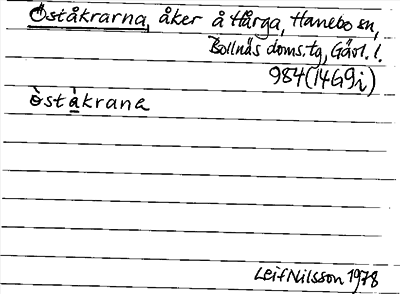 Öståkrarna, åker å Hårga, Hanebo sn,
Bollnäs doms.tg, Gävl. l.
984(14G9i)
ö̀stå̀krana
Leif Nilsson 1978